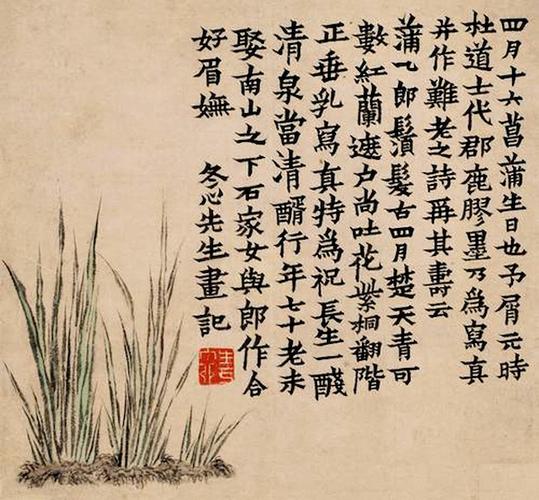 四月十六菖蒲生日也予屑元時
杜道士代郡鹿膠墨乃為寫真
并作難老之詩再其壽云
蒲〻郎鬚髮古四月楚天青可
數紅蘭遮户尚吐花紫桐翻階
正垂乳寫真特為祝長生一醆
清泉當清醑行年七十老未
娶南山之下石家女與郎作合
好眉嫵 冬心先生畫記